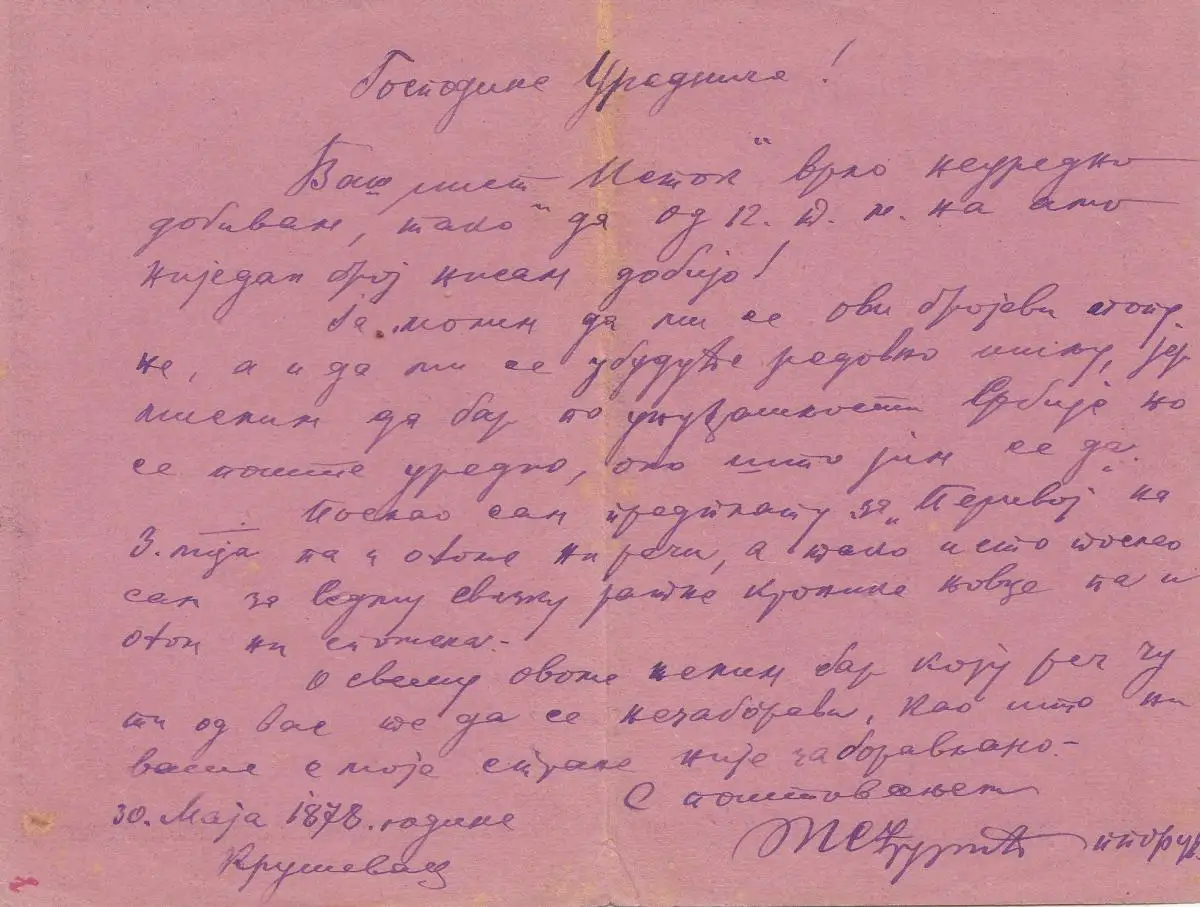 Господине Уредниче!
Ваш лист „Исток" врло неуредно
добивам, тако да од 12. т. м. на амо
ниједан број нисам добијо!
Ја молим да ми се ови бројеви попу
не, а и да ми се убудуће редовно шиљу, јер
мислим да бар по унутрашности Србије
се поште уредно, оно што јим се да.
Послао сам предплату за „Перивој" на
3. мја па и о томе ни речи, а тако исто послао
сам за Седму свеску ратне кронике новце па и
о том ни спомена.-
О свему овоме желим бар коју реч чу
ти од Вас те да се незаборави, као што ни
ваше с моје стране није заборављано.-
С поштовањем
30. Маја 1878. године
Крушевац